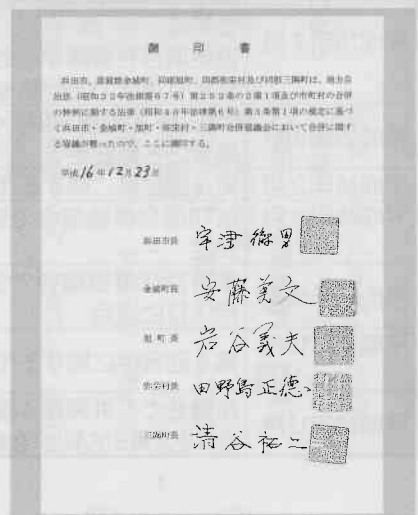 調印書
浜田市、那賀郡金城町、同郡旭町、同郡弥栄村及び同郡三隅町は、地方自
治法（昭和２２年法律第６７号）第２５２条の２第１項及び市町村の合併
の特例に関する法律（昭和４０年法律第６号）第３条第１項の規定に基づ
く浜田市・金城町・旭町・弥栄村・三隅町合併協議会において合併に関す
る協議が整ったので、ここに調印する。
平成16年12月23日
浜田市長 宇津徹男
金城町長 安藤美文
旭町長 岩谷義夫
弥栄村長 田野島正徳
三隅町長 清谷祐二